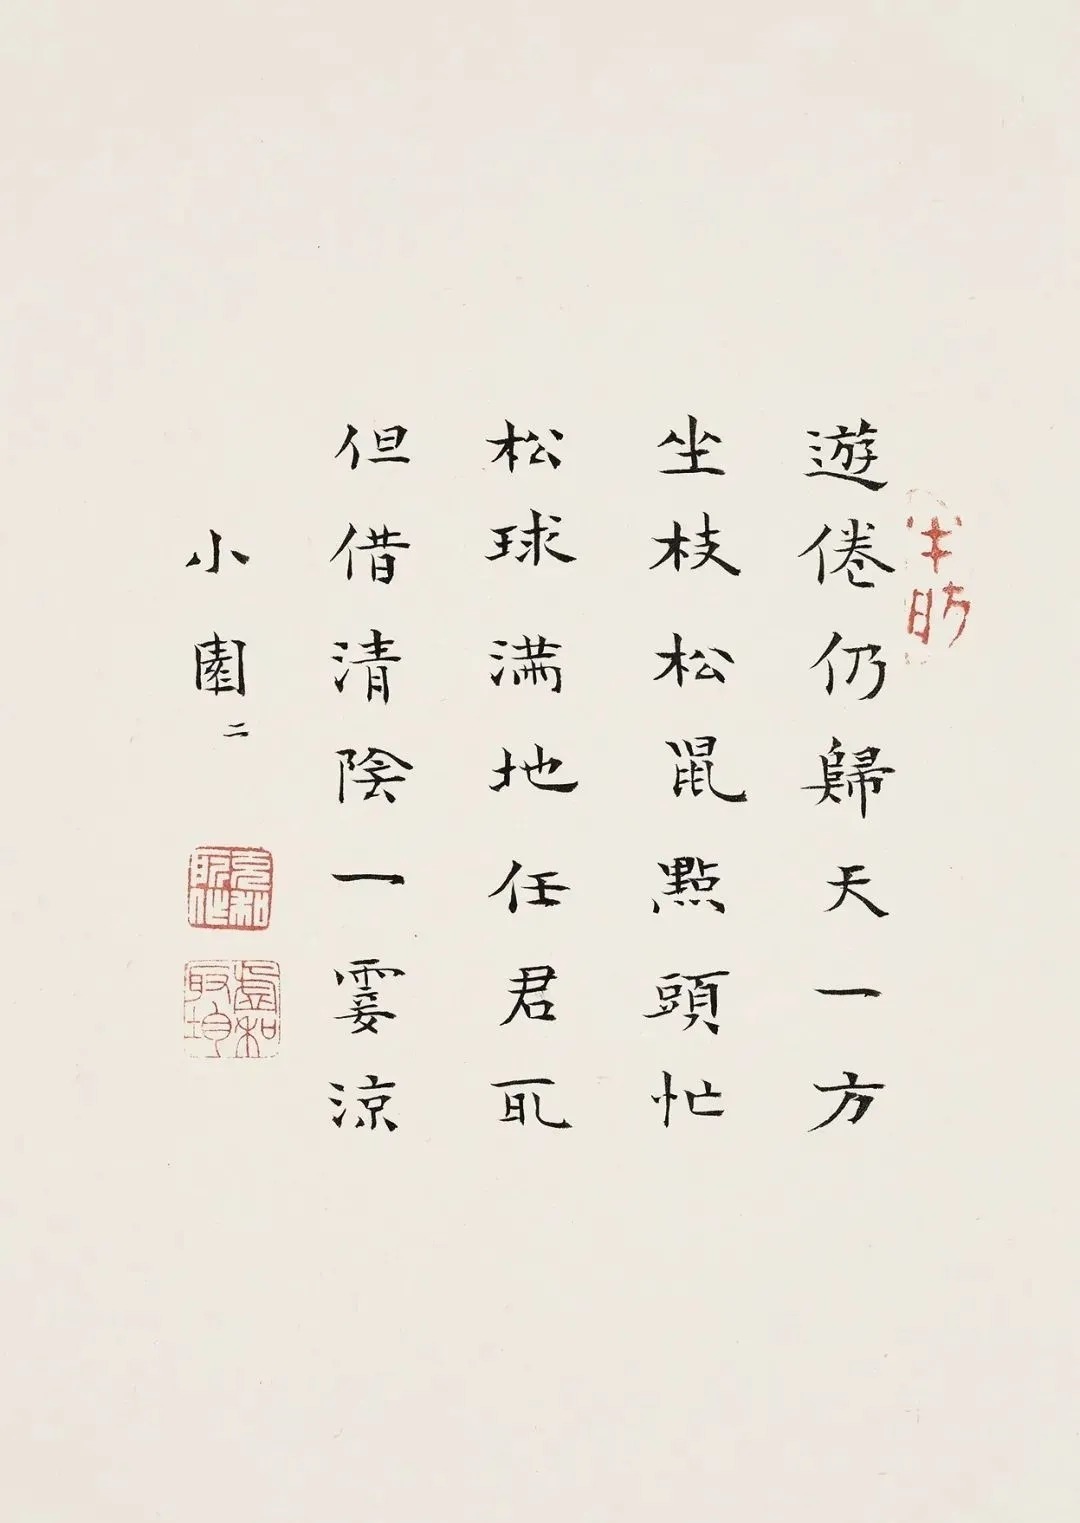 遊倦仍歸天一方
坐枝松鼠點頭忙
松球滿地任君取
但借清陰一霎涼
小園二